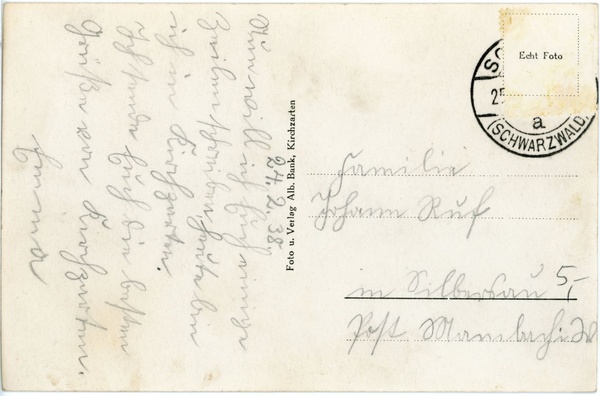 24.2.38.
Nun will ich Euch einige
Zeilen schreiben
ich in Kirchzarten.
Euch die besten
Grüße aus Kirchzarten.
Emma
Foto u. Verlag Alb. Bank, Kirchzarten
Echt Foto
a
(SCHWARZWALD)
Familie
Johann Ruf
in Silbersau
5,-
Post Mambach i. W